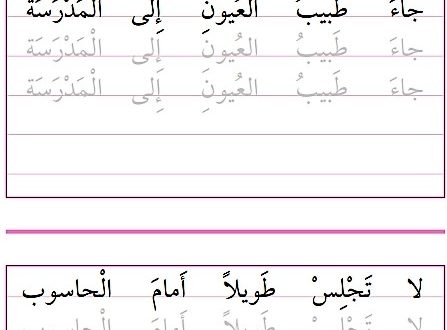 جاءَ طَبيبُ العُيونِ إِلى الْمَدْرَسَة
جاءَ طَبيبُ العُيونِ إِلى الْمَدْرَسَة
جاءَ طَبيبُ العُيونِ إِلى الْمَدْرَسَة
لا تَجْلِسْ طَويلاً أَمامَ الْحاسوب
لا تَجْلِسْ طَويلاً أَمامَ الْحاسوب